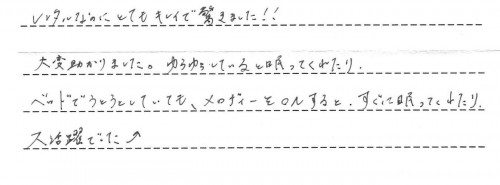 レンタルなのにとてもキレイで驚きました!!
大変助かりました。ゆらゆらしていると眠ってくれたり、
ベッドでうとうとしていても、メロディーをONすると、すぐに眠ってくれたり、
大活躍でした↗